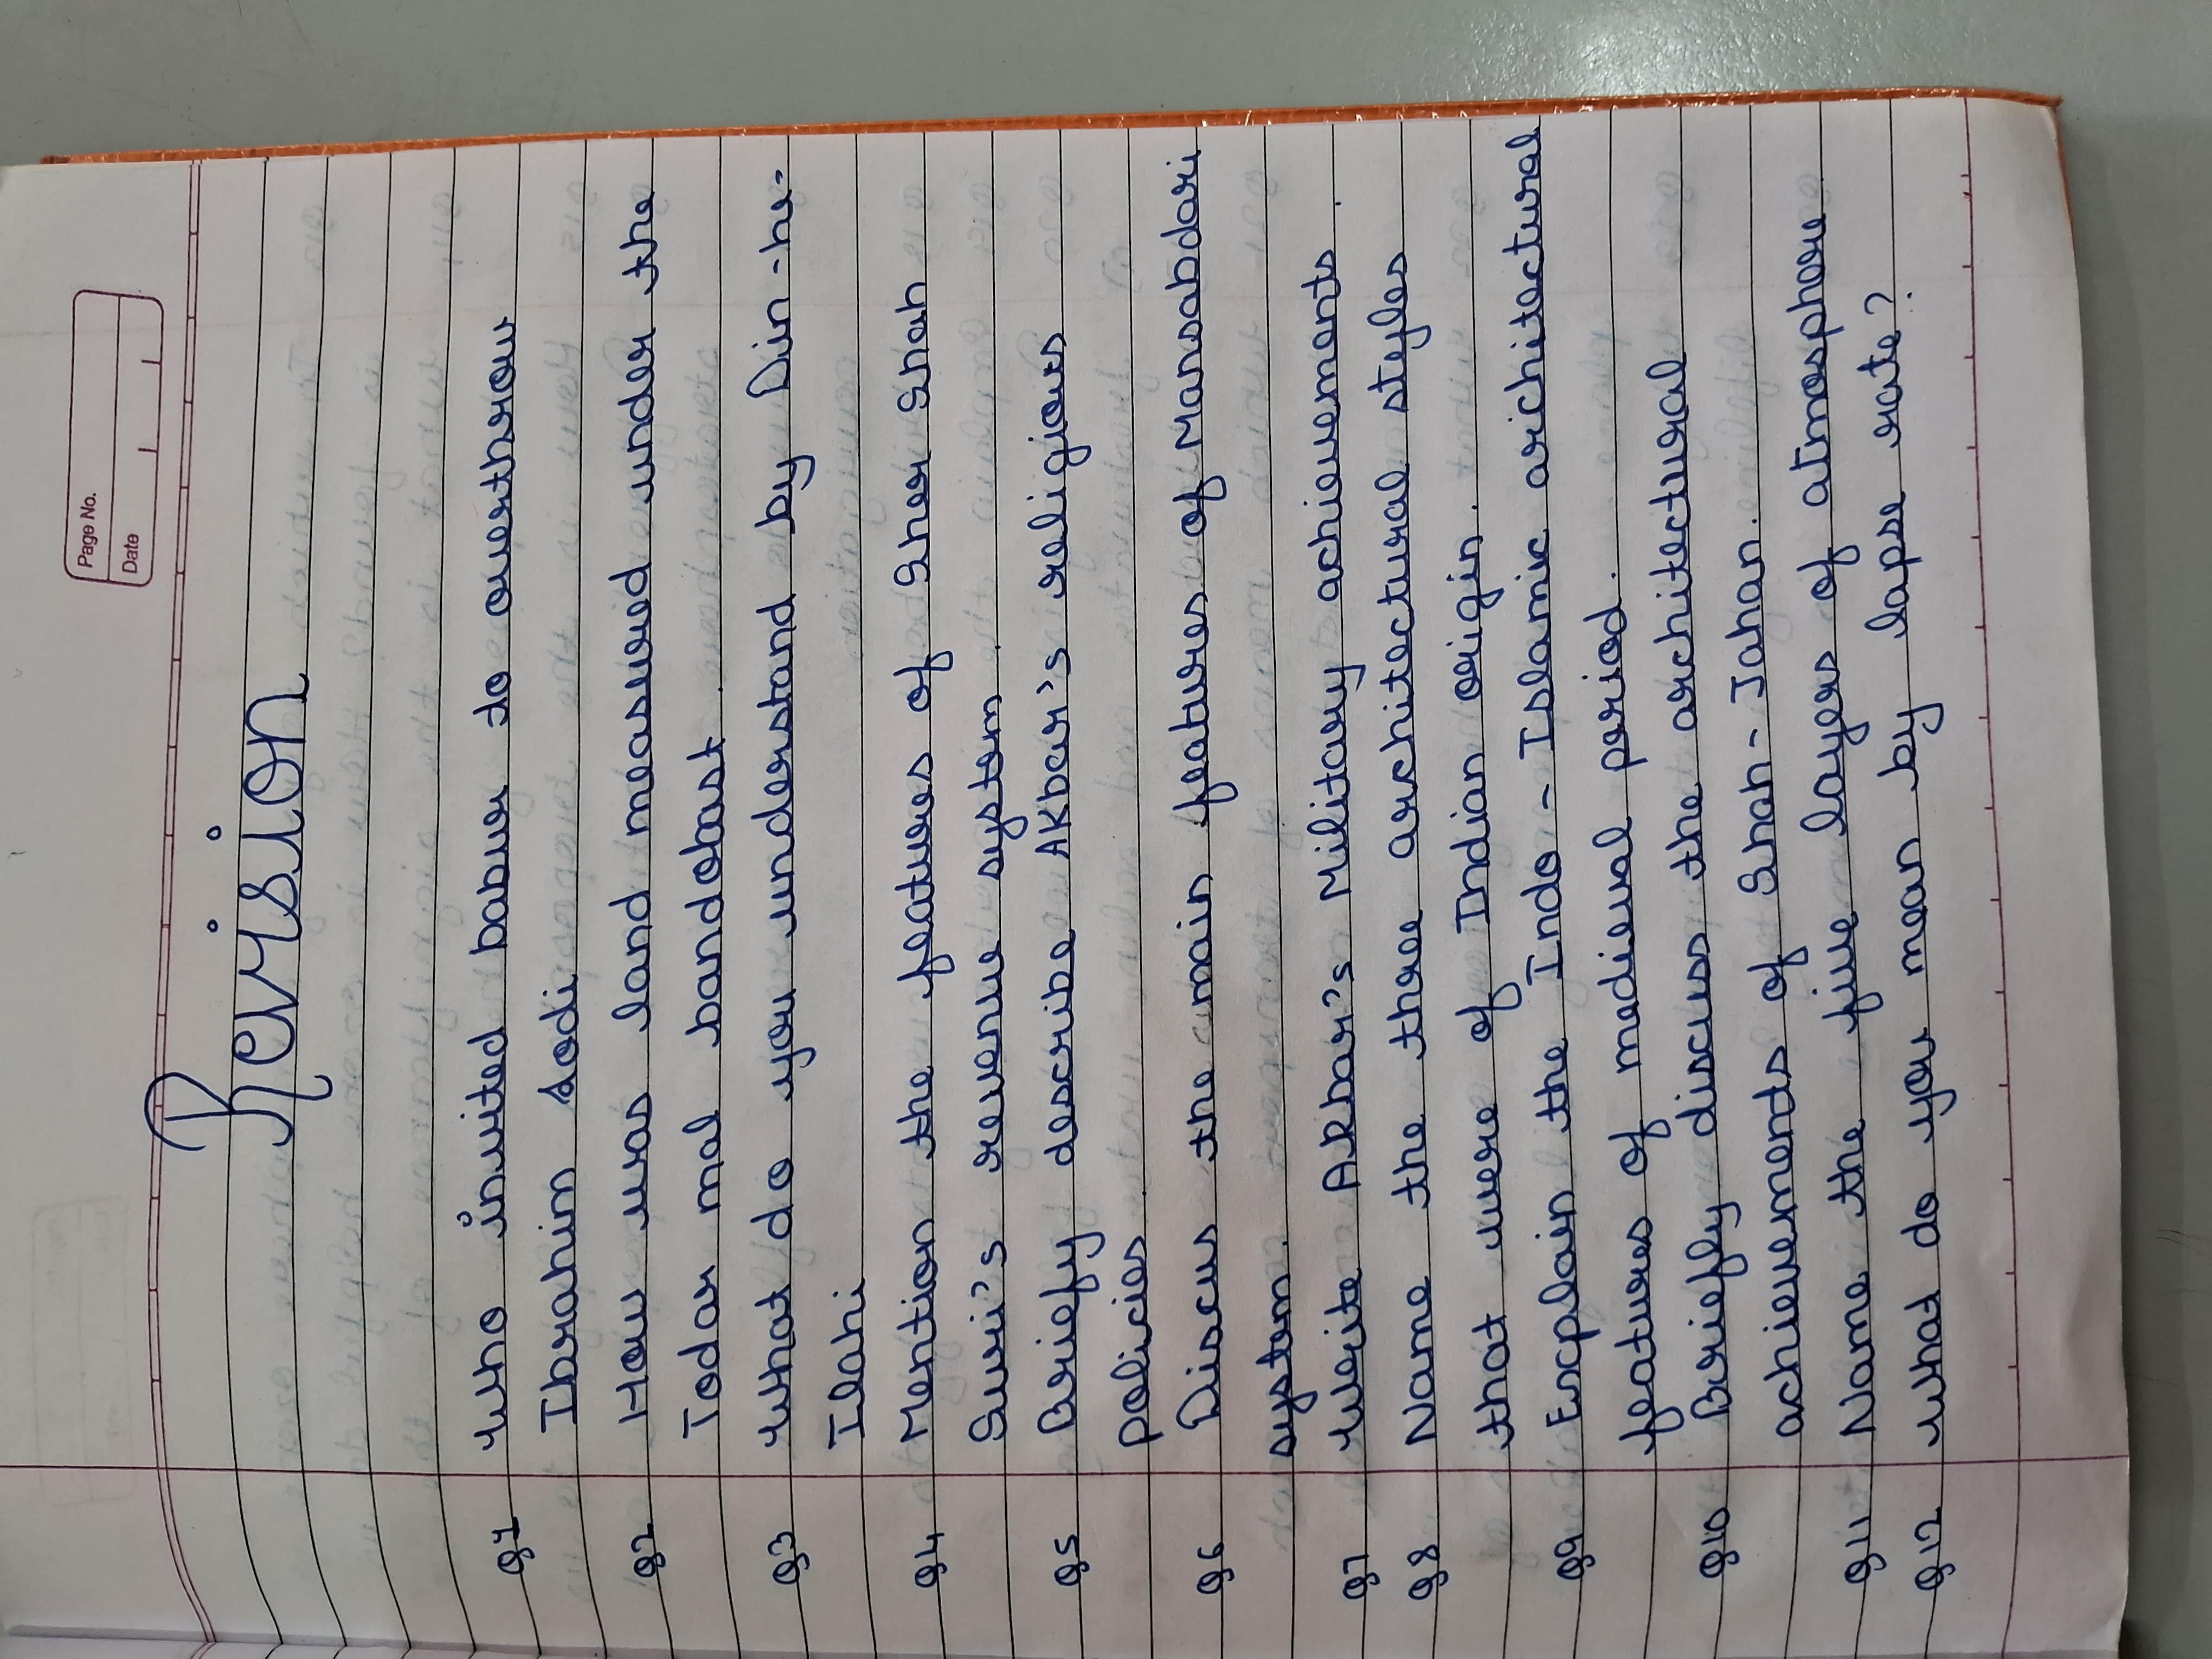 Page No.
Date
Revision
Q1 who invited babur to overthrow
Ibrahim Lodi
Q2 How was land measured under the
Todar mal bandobast.
Q3 what do you understand by Din-he-
Ilahi
Q4 Mention the features of Sher Shah
Suri's revenue system.
Q5 Briefly describe Akbar's religious
policies.
Q6 Discus the main features of Mansabdari
system.
Q7 write Akbar's Military achievements.
Q8 Name the three architectural styles
that were of Indian origin.
Q9 Explain the Indo-Islamic arichitectural
features of medieval period.
Q10 Briefly discuss the architectural
achievements of Shah-Jahan.
Q11 Name the five layers of atmosphere.
Q12 what do you mean by lapse rate?